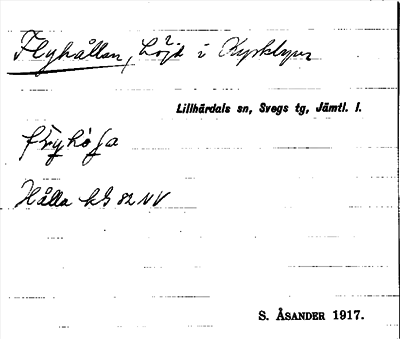 Flyhållan, Höjd i Kyrkbyn
Lillhärdals sn, Svegs tg, Jämtl. l.
flyhò ļa
Hålla kS 82 NV
S. ÅSANDER 1917.